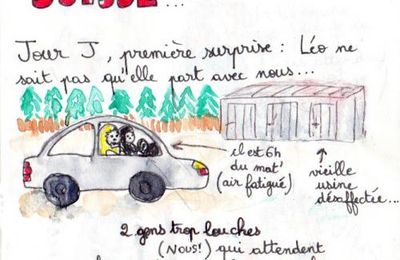 SUISSE...
Jour J, première surprise : Léo ne
sait pas qu'elle part avec nous...
il est 6h
du mat'
(air fatigué)
vieille
usine
désaffectée...
2 gens trop louches
(NOUS!) qui attendent